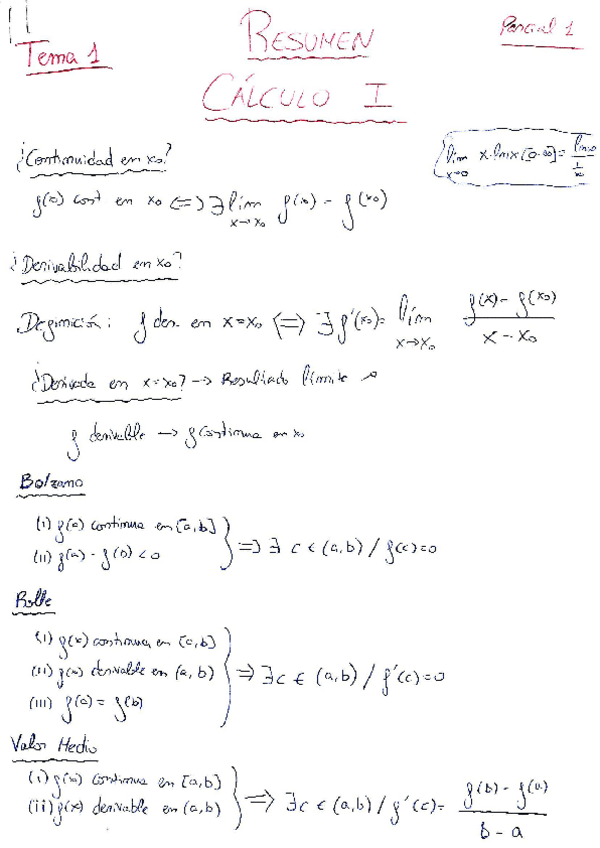 Tema 1
RESUMEN
CÁLCULO I
Parcial 1
¿Continuidad en x₀?
lím x→x₀ x·lnx [0·∞] = 
f(x) cont en x₀ <=> ∃ lím x→x₀ f(x) = f(x₀)
¿Derivabilidad en x₀?
Definición: f der. en x=x₀ <=> ∃ f'(x₀)= lím x→x₀ (f(x) - f(x₀)) / (x - x₀)
¿Derivada en x=x₀? → Resultado límite
f derivable → f continua en x₀
Bolzano
(i) f(x) continua en [a,b]
(ii) f(a) · f(b) < 0
=> ∃ c ∈ (a,b) / f(c)=0
Rolle
(i) f(x) continua en [a,b]
(ii) f(x) derivable en (a,b)
(iii) f(a) = f(b)
=> ∃ c ∈ (a,b) / f'(c)=0
Valor Medio
(i) f(x) continua en [a,b]
(ii) f(x) derivable en (a,b)
=> ∃ c ∈ (a,b) / f'(c)= (f(b) - f(a)) / (b - a)